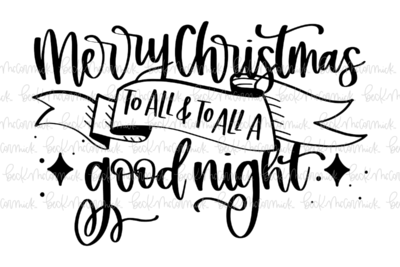 Merry Christmas
TO ALL & TO ALL A
good night